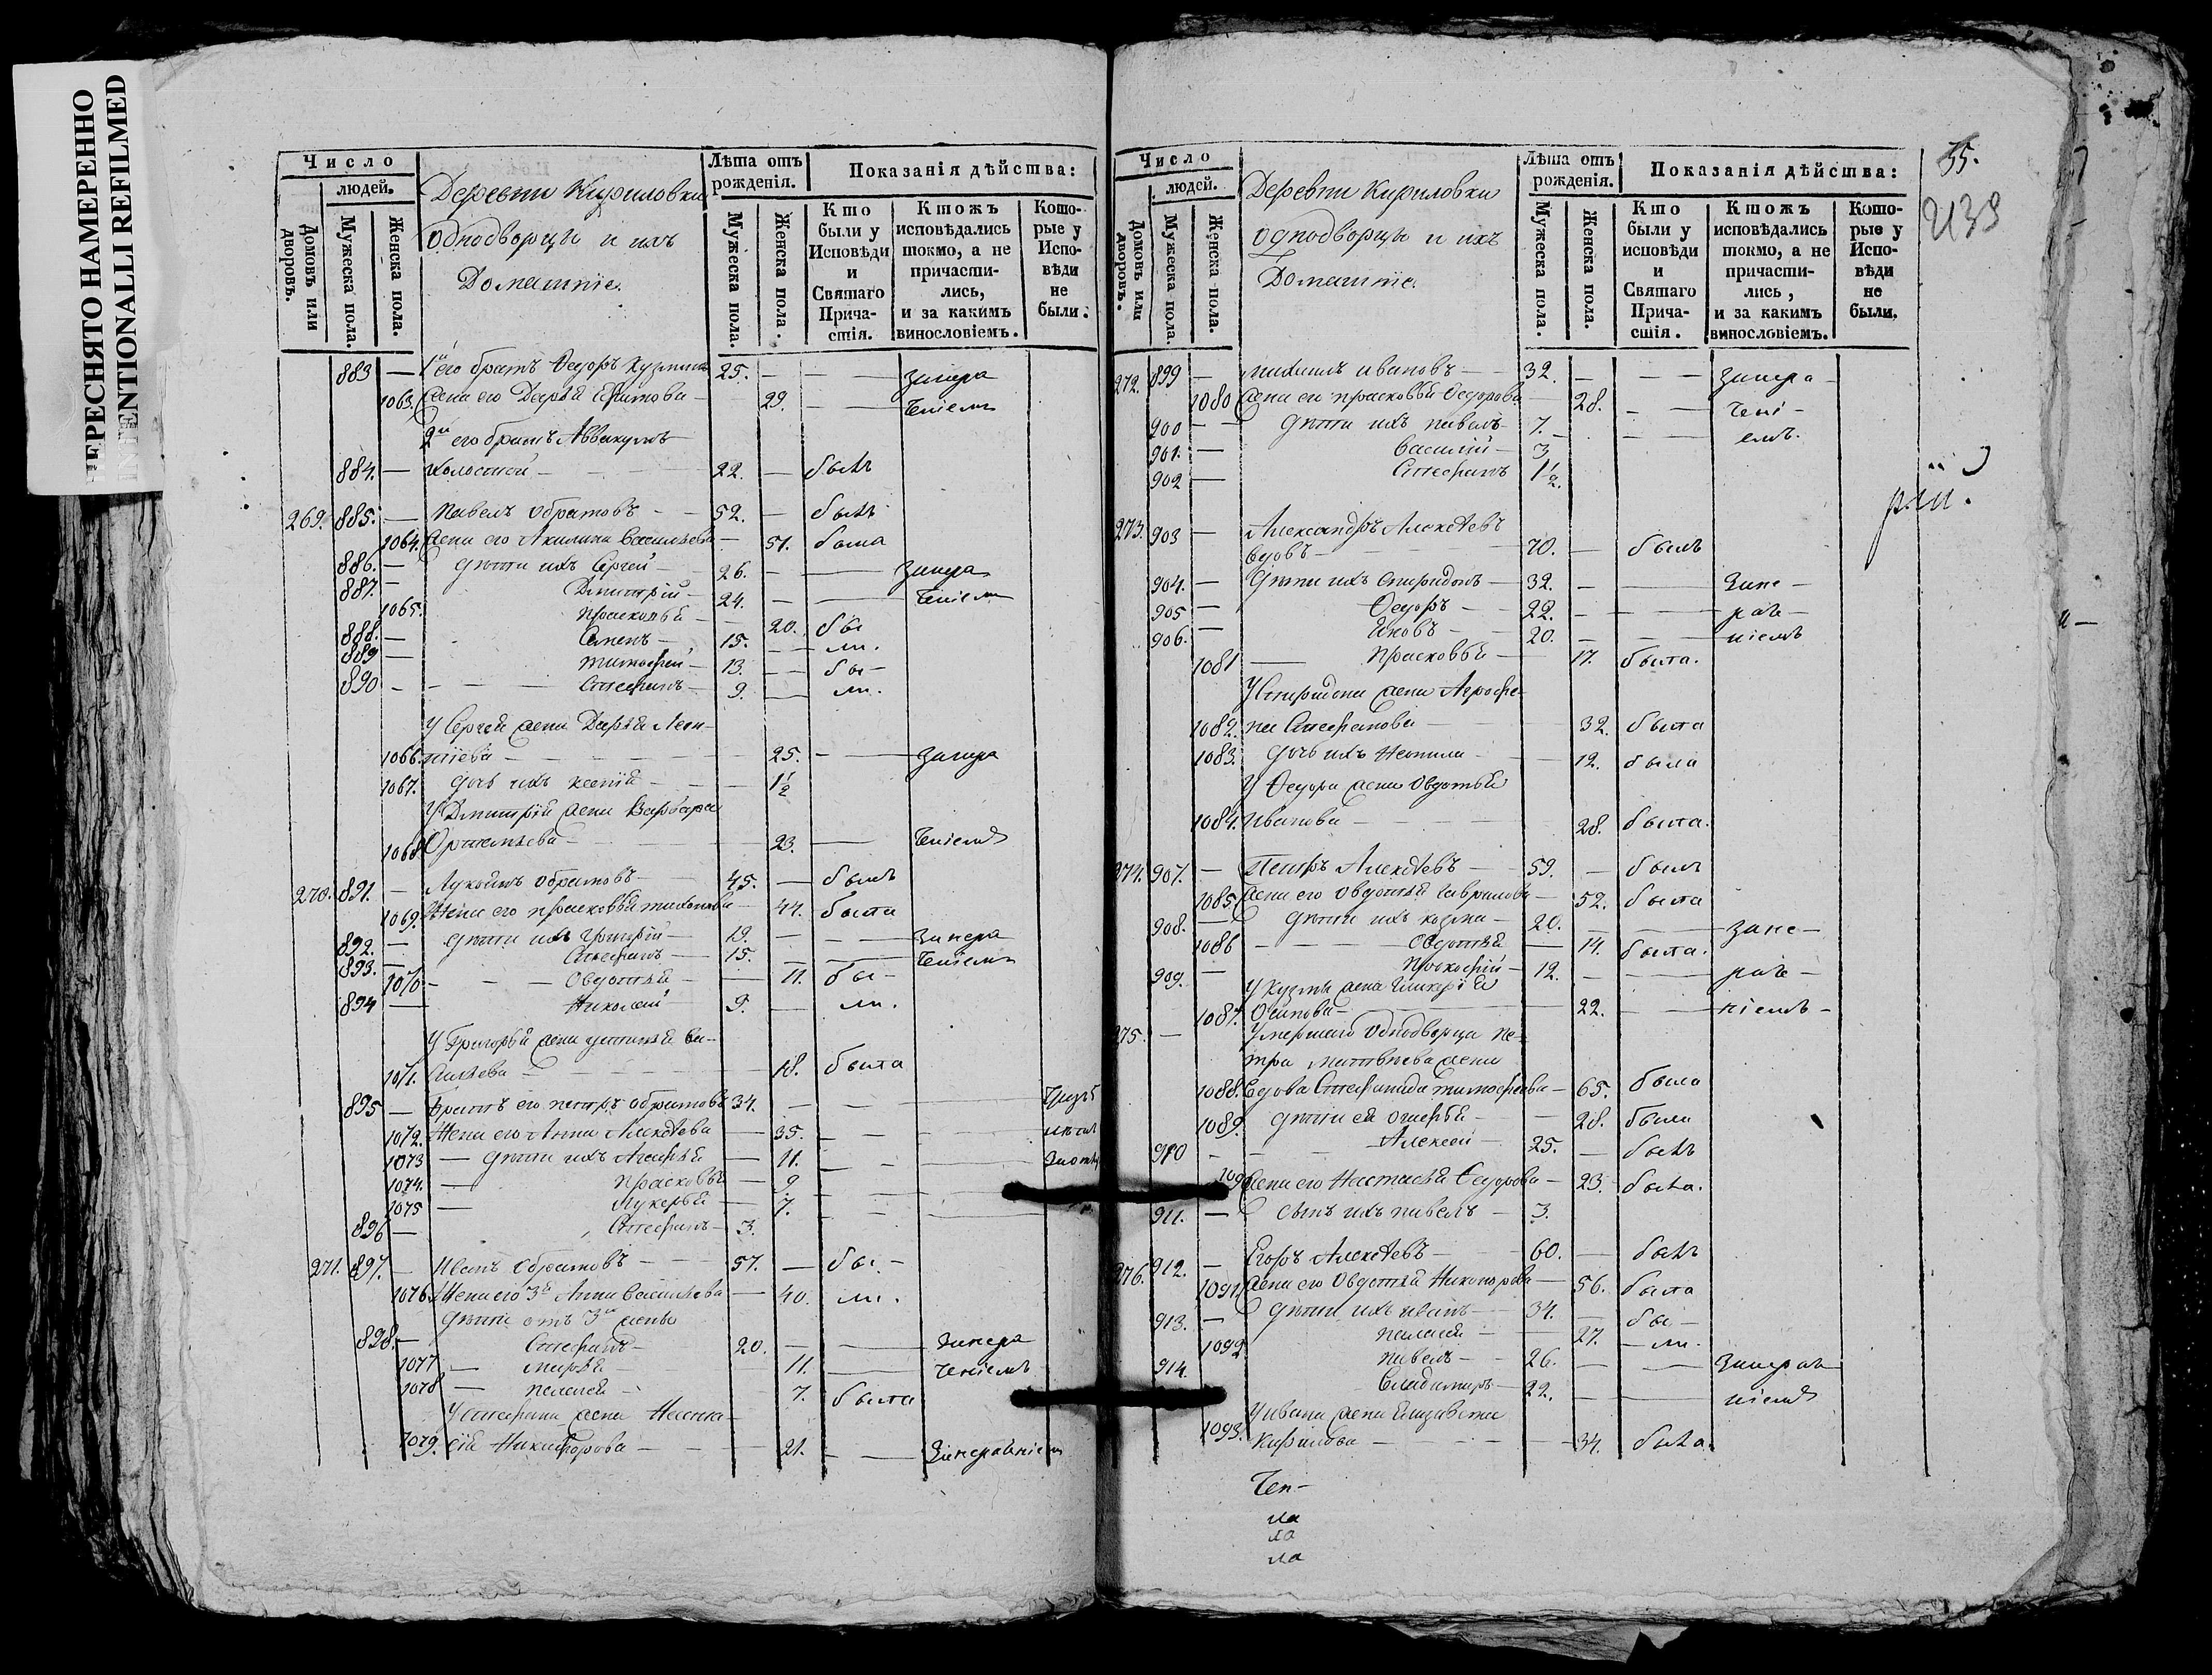 ПЕРЕСНЯТО НАМЕРЕННО
INTENTIONALLI REFILMED
Число
людей.
Домовъ или дворовъ.
Мужеска пола.
Женска пола.
Деревни Кириловки
однодворцы и ихъ
Домашніе.
Лѣта отъ рожденія.
Мужеска пола.
Женска пола.
Показанія дѣйства:
Кто были у Исповѣди и Святаго Причастія.
Ктожъ исповѣдались токмо, а не причастились, и за какимъ винословіемъ.
Которые у Исповѣди не были.
883 — 1й его братъ Ѳедоръ Кузминъ 25. — — — запера
1063. Жена его Дарья Ефимова — 29. — — ченіемъ
2й его братъ Аввакумъ
884. — холостой — 22. — былъ
269. 885. — Павелъ Обрамовъ — 52. — былъ
1064. Жена его Акилина Васильева — 51. была
886. — дѣти ихъ Сергей — 26. — — запера
887. — Дмитрій — 24. — — ченіем
1065. Прасковья — 20. бы
888. — Семенъ — 15. — ли.
889 — Тимофей — 13. — бы —
890 — Стефанъ — 9. — ли.
У Сергея жена Дарья Леон-
1066. тіева — 25. — запера
1067. дочь ихъ Ксенія — 1½
У Дмитрія жена Варвара
1068 Артемьева — 23. — ченіемъ
270. 891. — Лукоянъ Обрамовъ — 45. — былъ
1069. Жена его Прасковья — 44. была
892. — дѣти ихъ Григорій — 19. — — запера
893. — Стефанъ — 15. — — ченіемъ
1070 — Овдотья — 11. бы —
894 — Николай — 9. — ли.
У Григорья жена Устинья Ва-
1071. сильева — 18. была
895 — Братъ его Петръ Обрамовъ 34. — —
1072. Жена его Анна Алексѣева — 35. — —
1073 — дѣти ихъ — 11. — —
1074. — Прасковья — 9 — —
1075 — Лукерья — 7. — —
896 — Стефанъ — 3.
271. 897. — Иванъ Обрамовъ — 57. — бы —
1076. Жена его 3я Анна Васильева — 40. ли.
дѣти отъ 3й жены
898. — Стефанъ — 20. — — запера
1077 — Марья 11. — ченіемъ
1078 — Пелагея — 7. была
У Стефана жена Настa-
1079. сія Никифорова — 21. — — запераченіемъ
Число
людей.
Домовъ или дворовъ.
Мужеска пола.
Женска пола.
Деревни Кириловки
однодворцы и ихъ
Домашніе.
Лѣта отъ рожденія.
Мужеска пола.
Женска пола.
Показанія дѣйства:
Кто были у исповѣди и Святаго Причастія.
Ктожъ исповѣдались токмо, а не причастились, и за какимъ винословіемъ.
Которые у Исповѣди не были.
55.
272. 899 — Ивановъ — 32. — — — запера —
1080 Жена его Прасковья Ѳедорова — 28. — — чені —
900 — — дѣти ихъ Павелъ 7. — — — емъ.
901. — Василій — 3
902 — Стефанъ 1½.
273. 903 — Александръ Алексѣевъ
вдовъ — 70. — былъ
904. — дѣти ихъ Спиридонъ — 32. — — запе —
905 — Ѳедоръ — 22. — — раче —
906. — Яковъ — 20. — — ніемъ
1081 — Прасковья — 17. была.
У Спиридона жена Агрофе-
1082. на Стефанова — 32. была
1083. дочь ихъ Неонила — 12. была
У Ѳедора жена Овдотья
1084. Иванова — 28. была.
274. 907. — Петръ Алексѣевъ — 59. — былъ
1085. Жена его Овдотья Гаврилова — 52. была
908. — дѣти ихъ Козма — 20. — — запе —
1086 — Овдотья — 14. была.
909. — Прокофій — 12. — — раче —
У Кузмы жена Гликерія
1087. Осипова — 22. — — ніемъ —
275. — Умершаго однодворца Пе-
тра Матвѣева жена
1088. вдова Стефанида Тимофеева — 65. была
1089. дѣти ея — 28. была
910 — Алексей — 25. — былъ
1090 Жена его Настасья Ѳедорова — 23. была.
911. — сынъ ихъ Павелъ — 3.
276. 912. — Егоръ Алексѣевъ — 60. — былъ
1091 Жена его Овдотья Никонорова — 56. была
913. — дѣти ихъ Иванъ — 34. — бы —
1092 Пелагея — 27. — ли.
914. Павелъ — 26. — — заперач
Владимиръ — 22. — — ніемъ
У Ивана жена Елизавета
1093. Кирилова — 34. была.